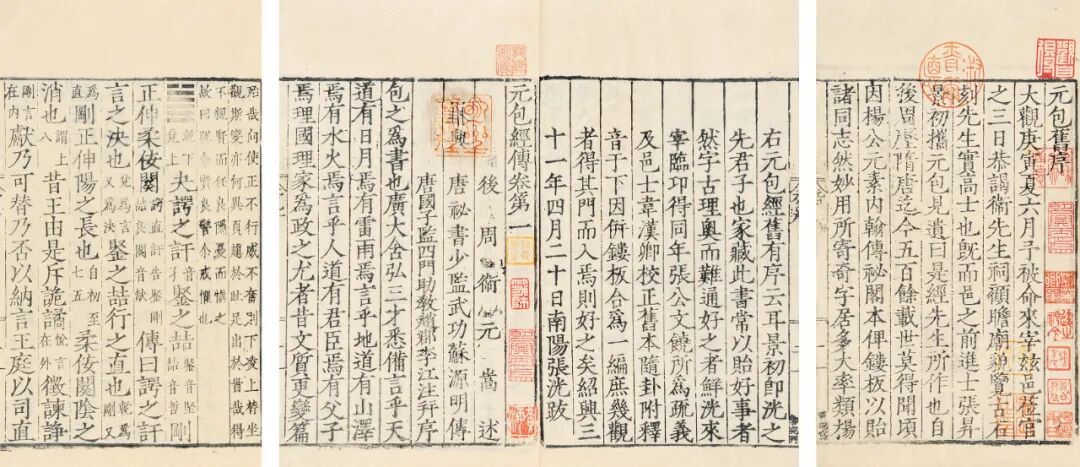 元包舊序
大觀庚寅夏六月予被命來宰茲邑莅官
之三日恭謁衞先生祠顧瞻廟貌覽古石
刻先生實高士也既而邑之前進士張昇
景初攜元包見遺曰是經先生所作也自
後周歷隋唐迄今五百餘載世莫得聞頃
因楊公元素內翰傳祕閣本俾鏤板以貽
諸同志然妙用所寄奇字居多大率類揚
右元包經舊有序云耳景初即洸之
先君子也家藏此書常以貽好事者
然字古理奧而難通好之者鮮洸來
宰臨卭得同年張公文饒所爲疏義
及邑士韋漢卿校正舊本隨卦附釋
音于下因併鏤板合爲一編庶幾觀
者得其門而入焉則好之矣紹興三
十一年四月二十日南陽張洸跋
元包經傳卷第一
後周衞元嵩述
唐祕書少監武功蘇源明傳
唐國子監四門助教趙郡李江注并序
包之爲書也廣大含弘三才悉備言乎天
道有日月焉有雷雨焉言乎地道有山澤
焉有水火焉言乎人道有君臣焉有父子
焉理國理家爲政之尤者昔文質更變篇
殆哉向使正不行威不奮剛下凌上替坐
觀斯變亦何異
不親賢而任
故曰理令賢良警令戒懼也
䷪ 乾下兌上 夬謣之訐 鋻之喆
正伸柔佞闋 傳曰謣之訐
言之決也 鋻之喆行之直也
剛正伸陽之長也 自初至五 柔佞闋陰之
消也 謂上 昔王由是斥詭譎 徵諫諍
獻乃可替乃否以納言王庭以司直